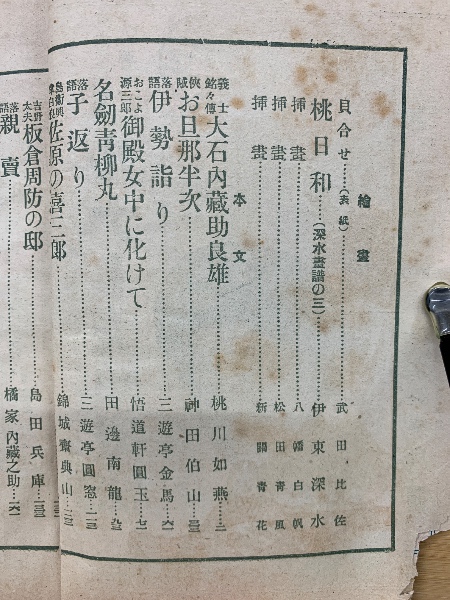 繪畫
貝合せ……(表紙)……武田比佐
桃日和……(深水畫譜の三)……伊東深水
揷畫……八幡白帆
揷畫……松田青風
揷畫……新關青花
本文
義士銘々傳 大石內藏助良雄……桃川如燕…
俠賊 お旦那半次……神田伯山…
落語 伊勢詣り……三遊亭金馬…
おこよ源三郎 御殿女中に化けて……悟道軒圓玉…
名劒青柳丸……田邊南龍…
落語 子返り……三遊亭圓窓…
佐原の喜三郎……錦城齋典山…
吉野太夫 板倉周防の邸……島田兵庫…
落語 親賣……橘家內藏之助…